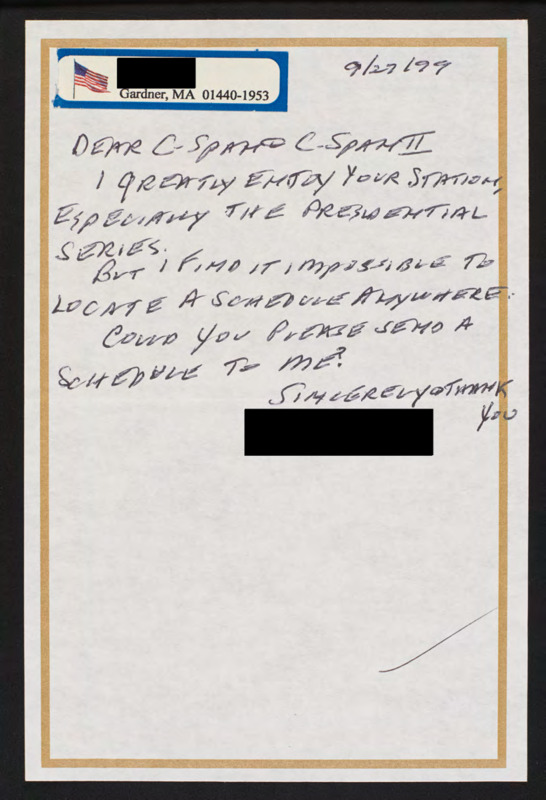 Gardner, MA 01440-1953
9/27/99
DEAR C-SPAN & C-SPAN II
I GREATLY ENJOY YOUR STATION,
ESPECIALLY THE PRESIDENTIAL
SERIES.
BUT I FIND IT IMPOSSIBLE TO
LOCATE A SCHEDULE ANYWHERE.
COULD YOU PLEASE SEND A
SCHEDULE TO ME?
SINCERELY & THANK
YOU